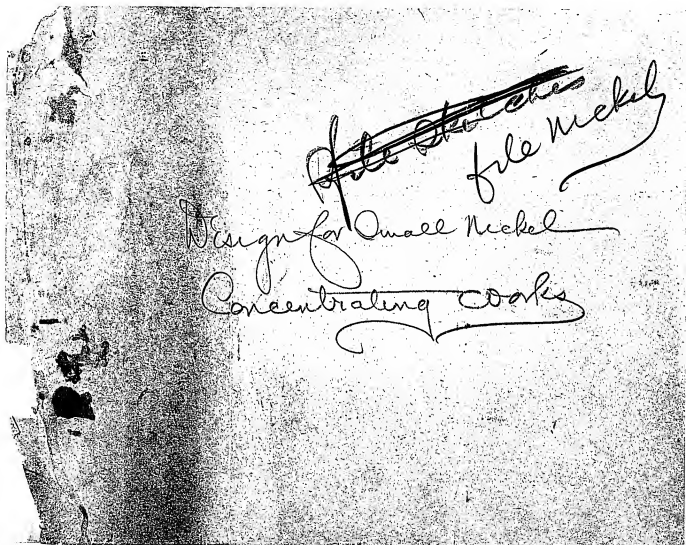 file sketches
file Nickel
Design for Small Nickel
Concentrating Works